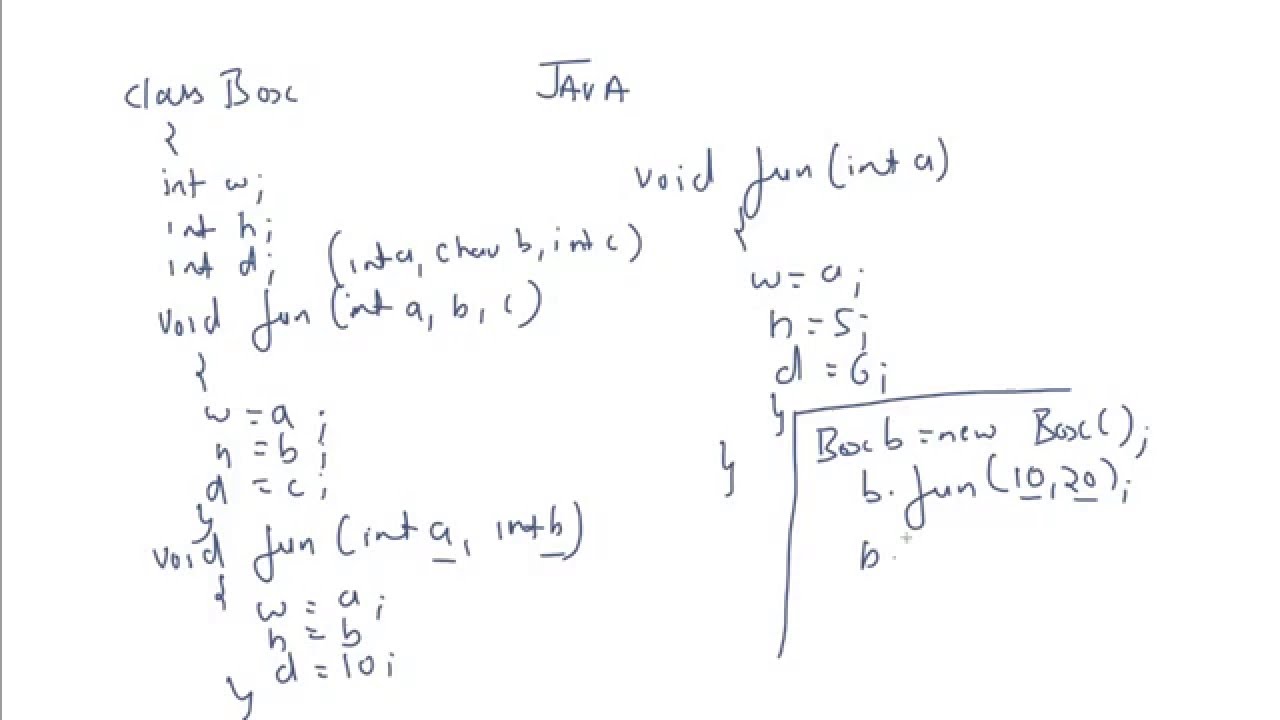 JAVA
class Box
{
int w;
int h;
int d;
(int a, char b, int c)
void fun (int a, b, c)
{
w = a ;
h = b ;
d = c ;
}
void fun (int a, int b)
{
w = a ;
h = b
d = 10 ;
}
void fun (int a)
{
w = a ;
h = 5 ;
d = 6 ;
}
}
Box b = new Box( ) ;
b. fun ( 10, 20 ) ;
b.